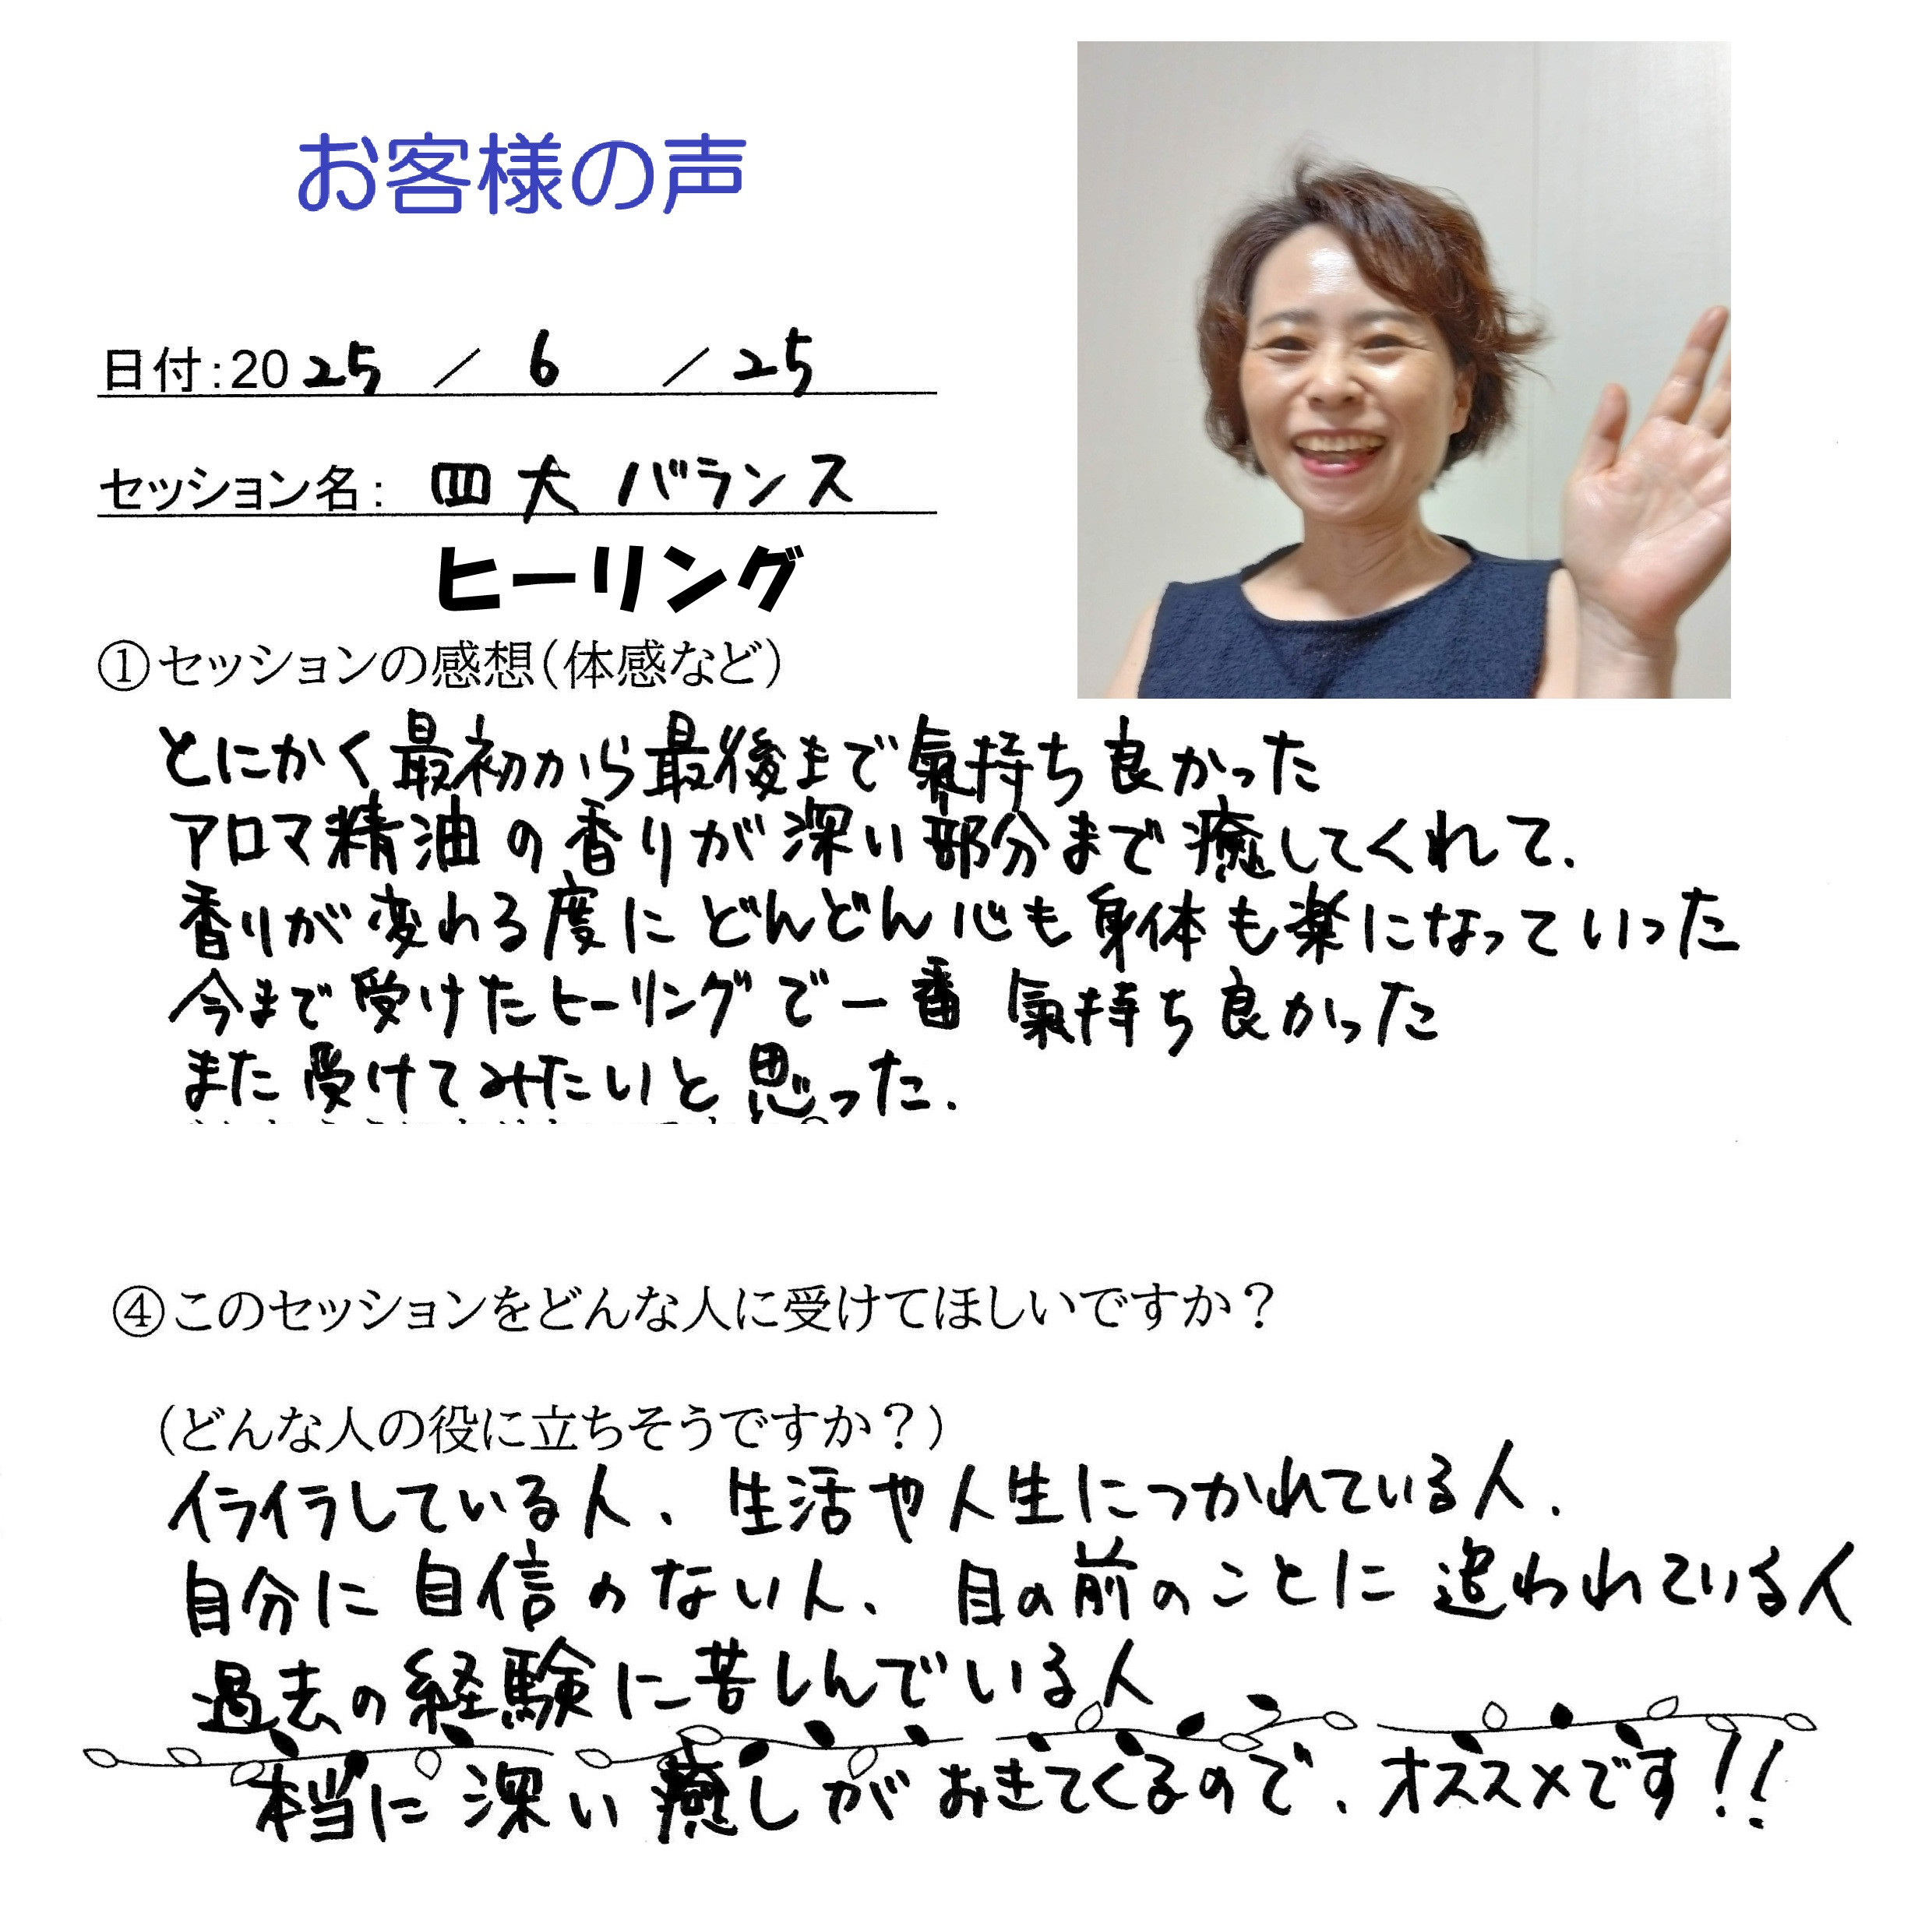 お客様の声
日付:2025 / 6 / 25
セッション名: 四大バランス
ヒーリング
①セッションの感想(体感など)
とにかく最初から最後まで氣持ち良かった
アロマ精油の香りが深い部分まで癒してくれて、
香りが変わる度にどんどん心も身体も楽になっていった
今まで受けたヒーリングで一番 氣持ち良かった
また受けてみたいと思った.
④このセッションをどんな人に受けてほしいですか?
(どんな人の役に立ちそうですか?)
イライラしている人、生活や人生につかれている人.
自分に自信のない人、目の前のことに追われている人
過去の経験に苦しんでいる人
本当に深い癒しがおきてくるので、オススメです!!